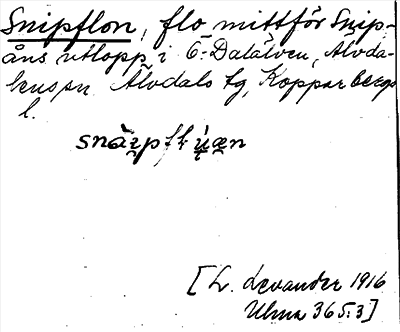 Snipflon, flo mittför Snip-
åns utlopp i Ö. Dalälven, Älvda-
lens sn. Älvdals tg, Kopparbergs
l.
[L. Levander 1916
Ulma 365:3]